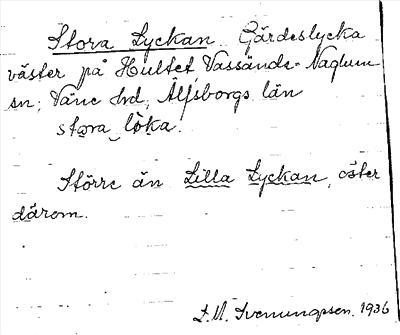 Stora Lyckan Gärdeslycka
väster på Hultet, Vassända-Naglum
sn; Väne hd, Älfsborgs län
stora lòka.
Större än Lilla Lyckan, öster
därom.
1936